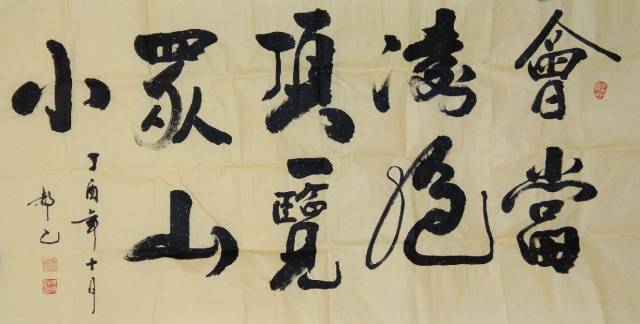 會當
凌絶
頂一覽
眾山
小
丁酉年十月